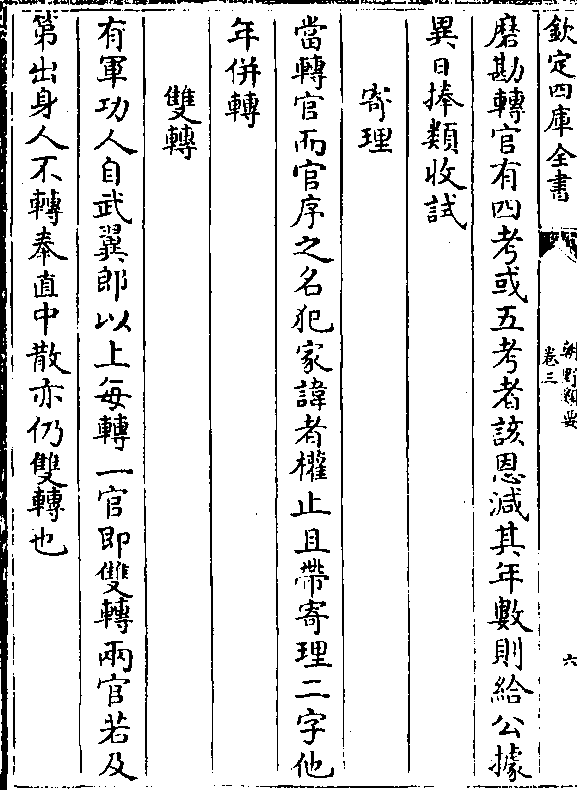 欽定四庫全書
朝野類要
卷三
六
磨勘轉官有四考或五考者該恩減其年數則給公據
異日捧類收試
寄理
當轉官而官序之名犯家諱者權止且帶寄理二字他
年併轉
雙轉
有軍功人自武翼郎以上每轉一官即雙轉兩官若及
第出身人不轉奉直中散亦仍雙轉也